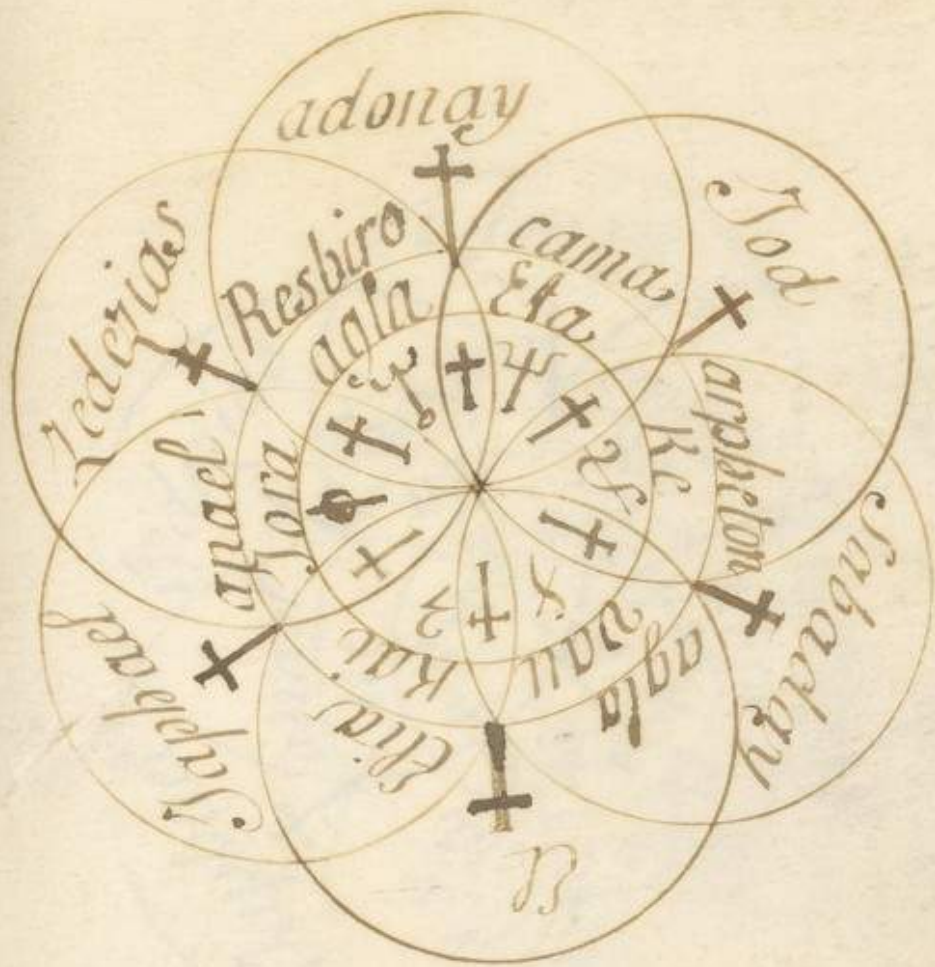 adonay
Jod
Sabaday
El
Japhael
Zederias
Resbiro
cama
arpheton
agla
Elia
apael
agla
Eta
Kc
vau
Kai
Jora